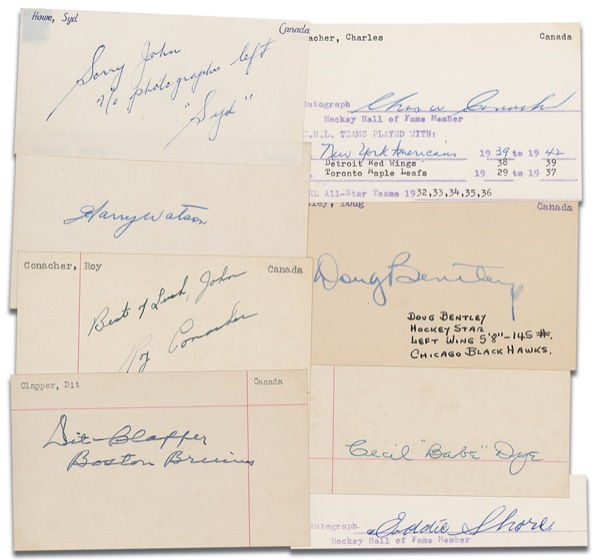 Howe, Syd
Canada
Sorry John
n/o photographs left
"Syd"
Harry Watson
Conacher, Roy
Canada
Best of Luck, John
Roy Conacher
Clapper, Dit
Canada
Dit Clapper
Boston Bruins
acher, Charles
Canada
Autograph
Chas w Conacher
Hockey Hall of Fame Member
.H.L. TEAMS PLAYED WITH:
New York Americans 1939 to 1942
Detroit Red Wings 38 39
Toronto Maple Leafs 1929 to 1937
HL All-Star Teams 1932,33,34,35,36
ley, Doug
Canada
Doug Bentley
DOUG BENTLEY
HOCKEY STAR
LEFT WING 5'8"-145 #.
CHICAGO BLACK HAWKS.
Cecil "Babe" Dye
Autograph
Eddie Shore
Hockey Hall of Fame Member